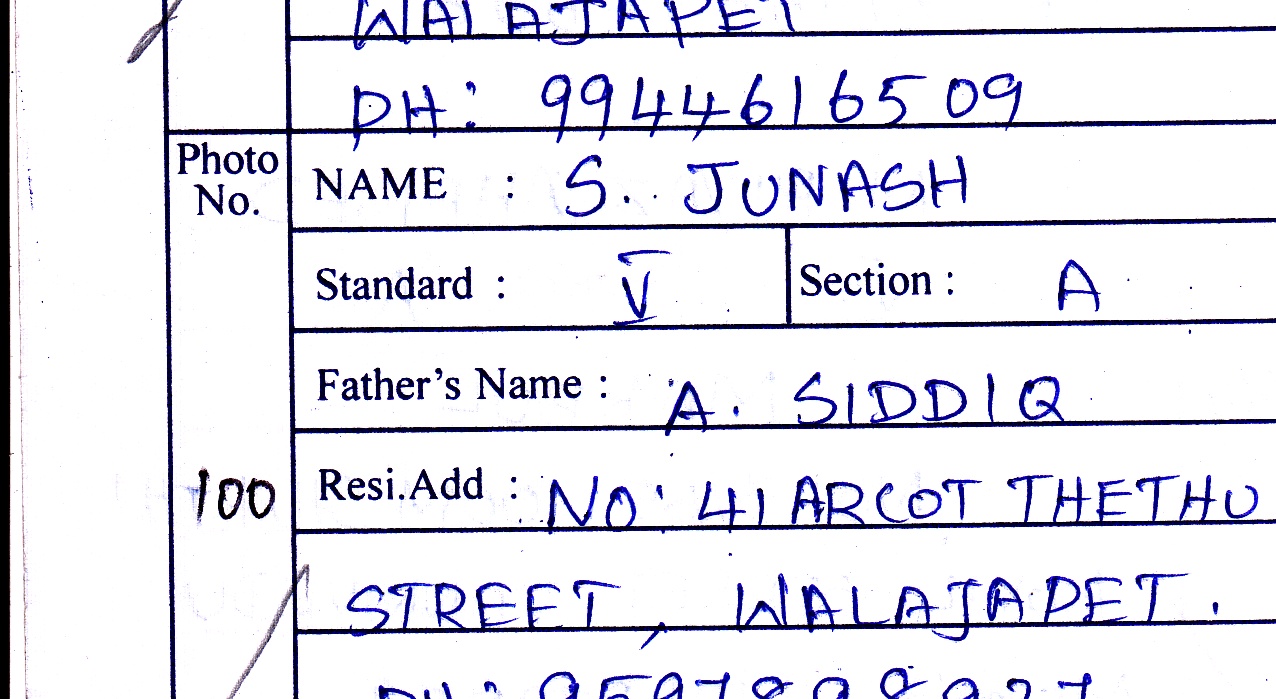 WALAJAPET
PH: 9944616509
Photo No.
NAME : S. JUNASH
Standard : V Section : A
Father's Name : A. SIDDIQ
100
Resi.Add : NO: 41 ARCOT THETHU
STREET, WALAJAPET.
PH: